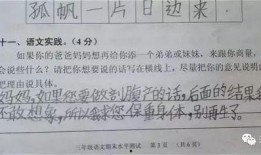 孤帆一片日边来
十一、语文实践。（4分）
如果你的爸爸妈妈想再给你添一个弟弟或妹妹，来跟你商量，
会说些什么？请把你想要说的话写在横线上，尽量把你的意见说明
把理由说具体。
妈妈，如果您要做剖腹产的话，后面的结果我
不敢想象，所以求您保重身体，别再生了。
三年级语文期末水平测试 第3页（共6页）